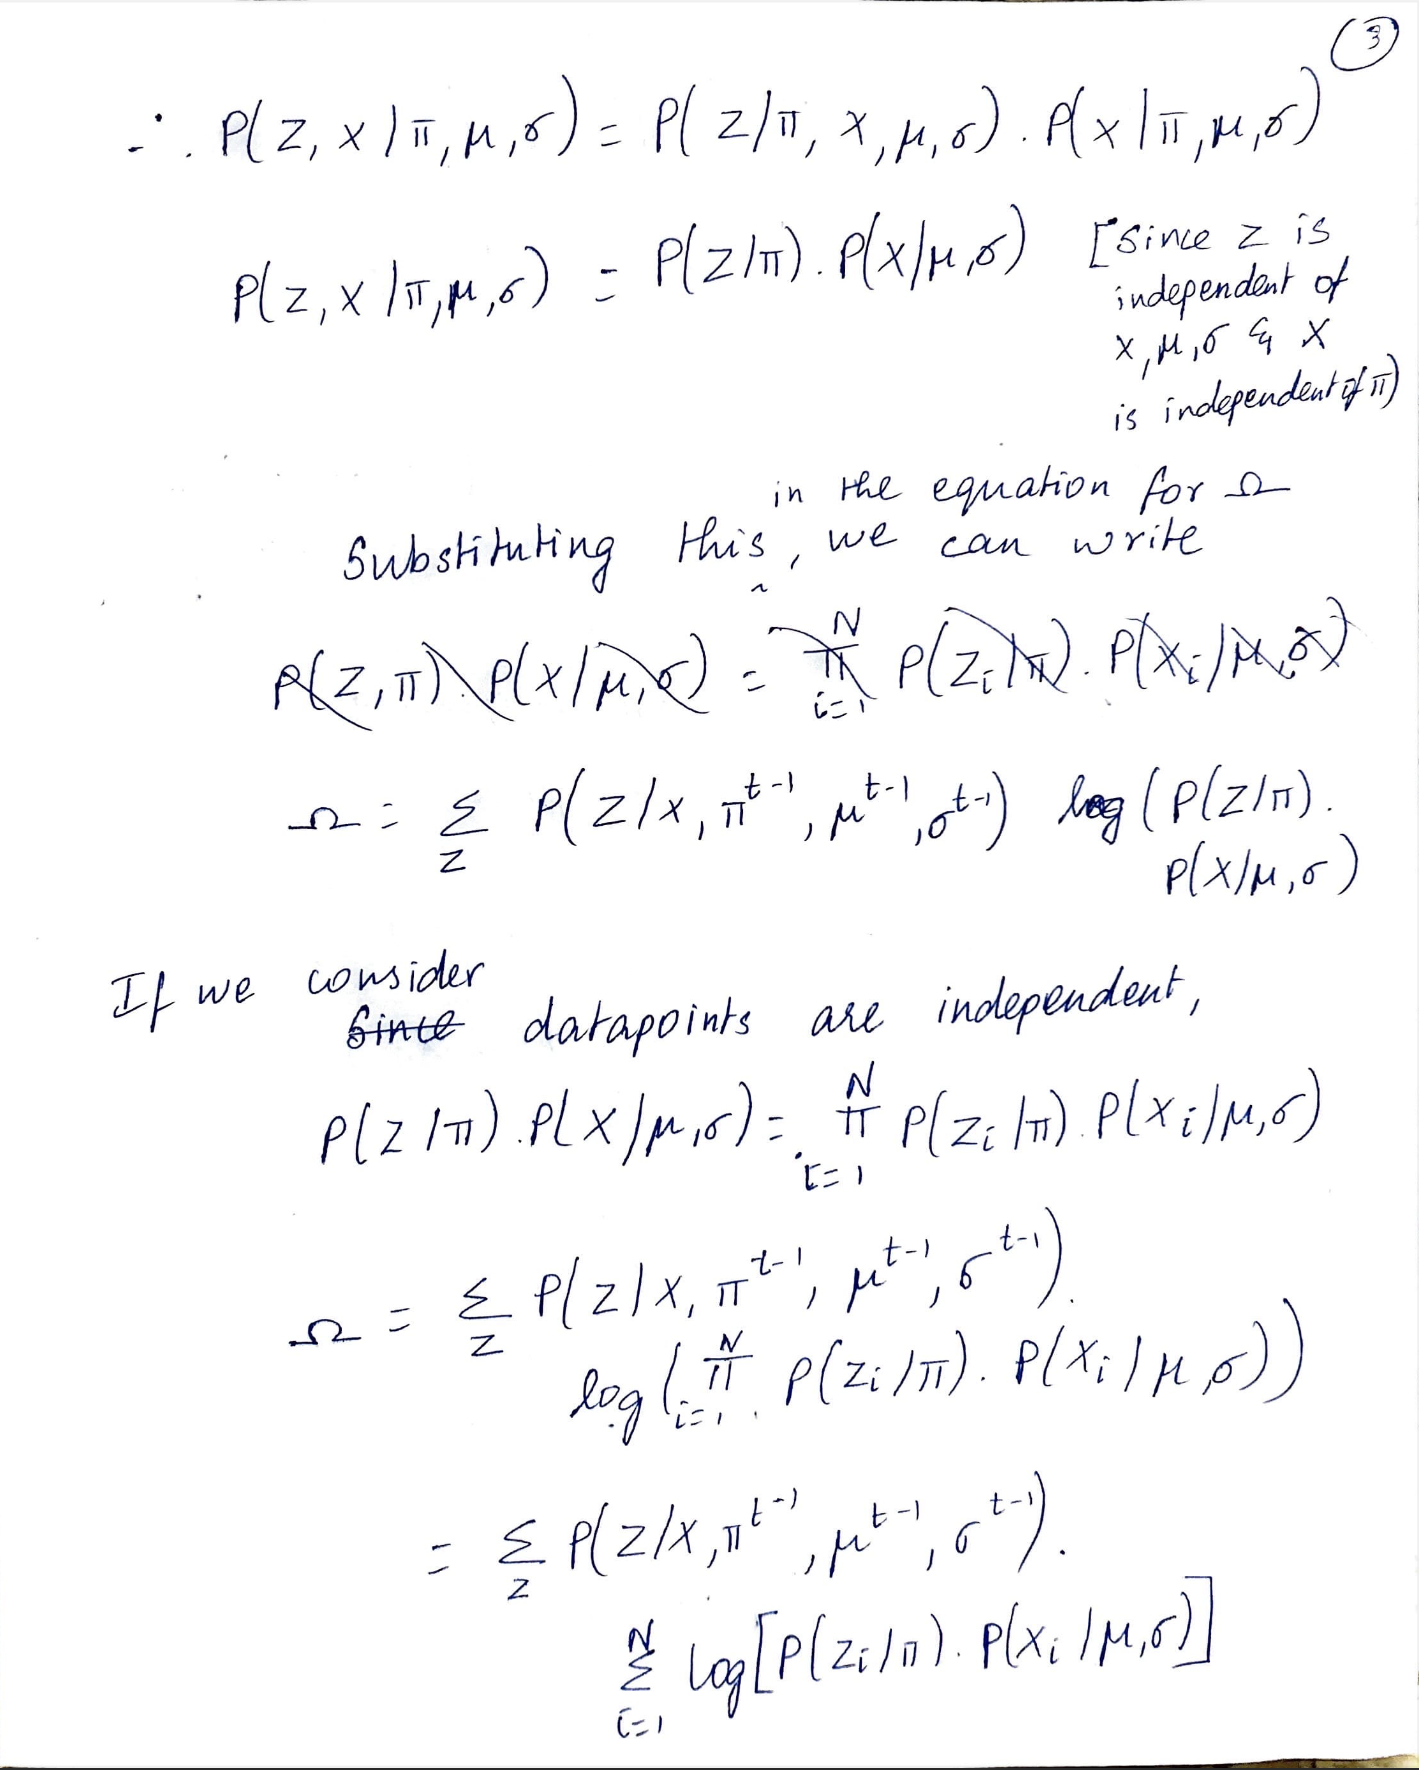 3
∴ P(z, x | π, μ, σ) = P( z/π, x, μ, σ) . P(x | π, μ, σ)
P(z, x | π, μ, σ) = P(z/π). P(x/μ, σ) [since z is
independent of
x, μ, σ & x
is independent of π)
in the equation for Ω
Substituting this, we can write
P(z, π) P(x/μ, σ) = π N i=1 P(z_i/π). P(x_i/μ, σ)
Ω = Σ_z P(z/x, π^t-1, μ^t-1, σ^t-1) log ( P(z/π).
P(x/μ, σ)
If we consider
Since datapoints are independent,
P(z/π). P(x/μ, σ) = π N i=1 P(z_i/π). P(x_i/μ, σ)
Ω = Σ_z P(z/x, π^t-1, μ^t-1, σ^t-1).
log ( π N i=1 P(z_i/π). P(x_i | μ, σ))
= Σ_z P(z/x, π^t-1, μ^t-1, σ^t-1).
Σ N i=1 log [P(z_i/π). P(x_i | μ, σ)]